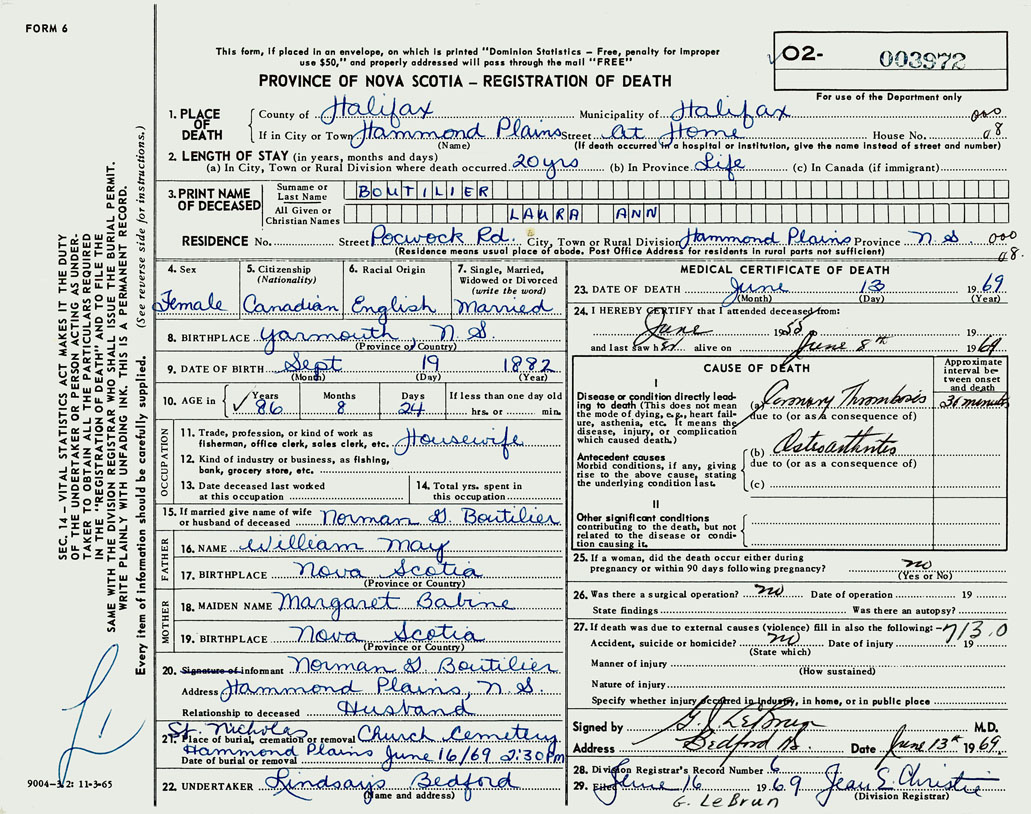 FORM 6
This form, if placed in an envelope, on which is printed "Dominion Statistics – Free, penalty for improper
use $50," and properly addressed will pass through the mail "FREE"
PROVINCE OF NOVA SCOTIA – REGISTRATION OF DEATH
O2- 003972
For use of the Department only
1. PLACE OF DEATH
County of Halifax Municipality of Halifax 000
If in City or Town Hammond Plains Street At Home House No. 08
(Name) (If death occurred in a hospital or institution, give the name instead of street and number)
2. LENGTH OF STAY (in years, months and days)
(a) In City, Town or Rural Division where death occurred 20 yrs (b) In Province Life (c) In Canada (if immigrant)
3. PRINT NAME OF DECEASED
Surname or Last Name BOUTILIER
All Given or Christian Names LAURA ANN
RESIDENCE No. Street Pocwock Rd. City, Town or Rural Division Hammond Plains Province N.S. 000
(Residence means usual place of abode. Post Office Address for residents in rural parts not sufficient) 08.
4. Sex Female
5. Citizenship (Nationality) Canadian
6. Racial Origin English
7. Single, Married, Widowed or Divorced (write the word) Married
8. BIRTHPLACE Yarmouth, N.S.
(Province or Country)
9. DATE OF BIRTH Sept 19 1882
(Month) (Day) (Year)
10. AGE in Years 86 Months 8 Days 24 If less than one day old
hrs. or min.
OCCUPATION
11. Trade, profession, or kind of work as
fishermen, office clerk, sales clerk, etc. Housewife
12. Kind of industry or business, as fishing,
bank, grocery store, etc.
13. Date deceased last worked
at this occupation
14. Total yrs. spent in
this occupation
15. If married give name of wife
or husband of deceased Norman G. Boutilier
FATHER
16. NAME William May
17. BIRTHPLACE Nova Scotia
(Province or Country)
MOTHER
18. MAIDEN NAME Margaret Babine
19. BIRTHPLACE Nova Scotia
(Province or Country)
20. Signature of informant Norman G. Boutilier
Address Hammond Plains, N.S.
Relationship to deceased Husband
St. Nicholas
21. Place of burial, cremation or removal Church Cemetery
Hammond Plains June 16/69 2:30 Pm
Date of burial or removal
22. UNDERTAKER Lindsays Bedford
(Name and address)
MEDICAL CERTIFICATE OF DEATH
23. DATE OF DEATH June 13 1969
(Month) (Day) (Year)
24. I HEREBY CERTIFY that I attended deceased from:
June 19 19
and last saw her alive on June 8th 1969
CAUSE OF DEATH
Approximate interval between onset and death
I
Disease or condition directly leading
to death (This does not mean
the mode of dying, e.g., heart failure,
asthenia, etc. It means the
disease, injury, or complication
which caused death.)
(a) Coronary Thrombosis 30 minutes
due to (or as a consequence of)
Antecedent causes
Morbid conditions, if any, giving
rise to the above cause, stating
the underlying condition last.
(b) Osteoarthritis
due to (or as a consequence of)
(c)
II
Other significant conditions
contributing to the death, but not
related to the disease or condition
causing it.
25. If a woman, did the death occur either during
pregnancy or within 90 days following pregnancy? no
(Yes or No)
26. Was there a surgical operation? no Date of operation 19
State findings Was there an autopsy?
27. If death was due to external causes (violence) fill in also the following: 713.0
Accident, suicide or homicide? no Date of injury 19
(State which)
Manner of injury
(How sustained)
Nature of injury
Specify whether injury occurred in industry, in home, or in public place
Signed by G. J. LeBrun M.D.
Address Bedford N.S. Date June 13th 1969.
28. Division Registrar's Record Number 6
29. Filed June 16 1969 Jean E. Christie
(Division Registrar)
G. LeBrun
SEC. 14 – VITAL STATISTICS ACT MAKES IT THE DUTY
OF THE UNDERTAKER OR PERSON ACTING AS UNDER-
TAKER TO OBTAIN ALL THE PARTICULARS REQUIRED
IN THE "REGISTRATION OF DEATH" AND TO FILE THE
SAME WITH THE DIVISION REGISTRAR WHO SHALL ISSUE THE BURIAL PERMIT.
WRITE PLAINLY WITH UNFADING INK. THIS IS A PERMANENT RECORD.
Every item of information should be carefully supplied. (See reverse side for instructions.)
9004-3/2: 11-3-65